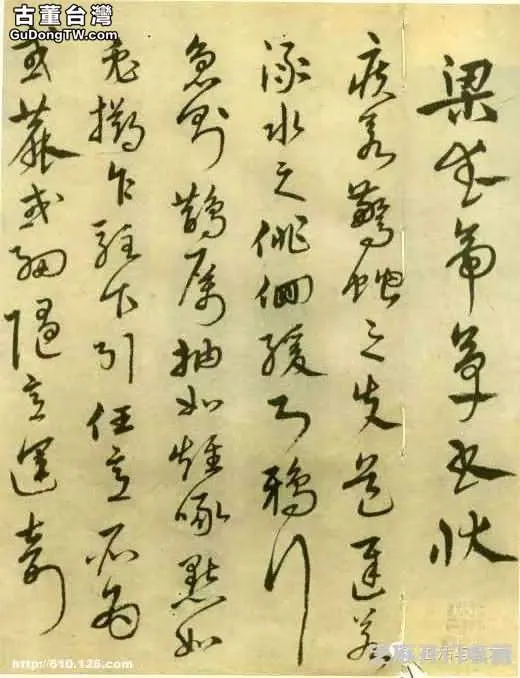 古董台灣
GuDongTW.com
梁武帝草書狀
疾若驚蛇之失道遲若
淥水之俳佪緩則鴉行
急則鵲厲抽如雉啄點如
兔擲乍駐乍引任意所為
或麁或細隨意運奇
http://610.126.com